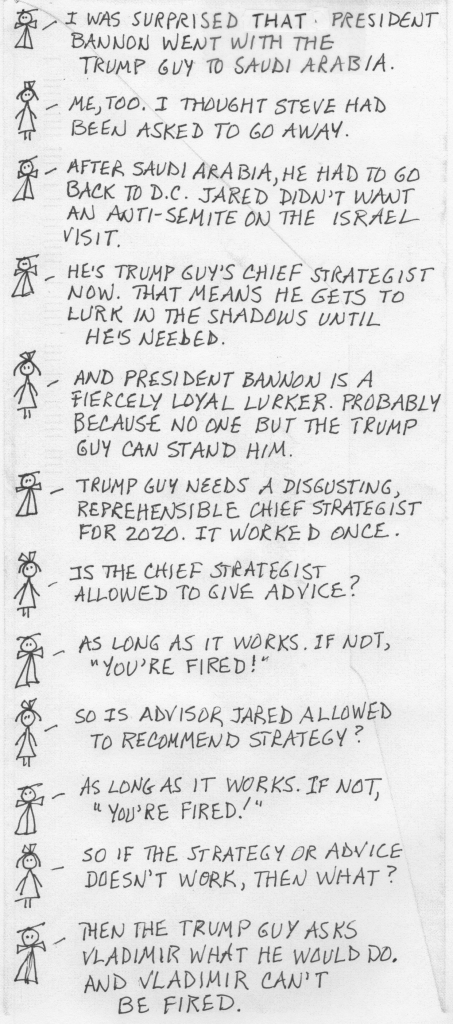 I WAS SURPRISED THAT PRESIDENT
BANNON WENT WITH THE
TRUMP GUY TO SAUDI ARABIA.
ME, TOO. I THOUGHT STEVE HAD
BEEN ASKED TO GO AWAY.
AFTER SAUDI ARABIA, HE HAD TO GO
BACK TO D.C. JARED DIDN'T WANT
AN ANTI-SEMITE ON THE ISRAEL
VISIT.
HE'S TRUMP GUY'S CHIEF STRATEGIST
NOW. THAT MEANS HE GETS TO
LURK IN THE SHADOWS UNTIL
HE'S NEEDED.
AND PRESIDENT BANNON IS A
FIERCELY LOYAL LURKER. PROBABLY
BECAUSE NO ONE BUT THE TRUMP
GUY CAN STAND HIM.
TRUMP GUY NEEDS A DISGUSTING,
REPREHENSIBLE CHIEF STRATEGIST
FOR 2020. IT WORKED ONCE.
IS THE CHIEF STRATEGIST
ALLOWED TO GIVE ADVICE?
AS LONG AS IT WORKS. IF NOT,
"YOU'RE FIRED!"
SO IS ADVISOR JARED ALLOWED
TO RECOMMEND STRATEGY?
AS LONG AS IT WORKS. IF NOT,
"YOU'RE FIRED!"
SO IF THE STRATEGY OR ADVICE
DOESN'T WORK, THEN WHAT?
THEN THE TRUMP GUY ASKS
VLADIMIR WHAT HE WOULD DO.
AND VLADIMIR CAN'T
BE FIRED.